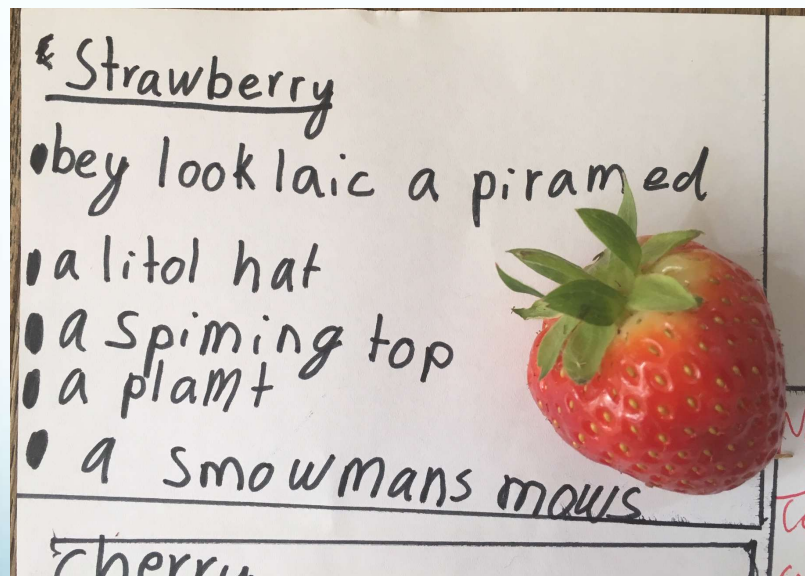 Strawberry
bey look laic a piramed
a litol hat
a spiming top
a plamt
a smowmans mows
cherry